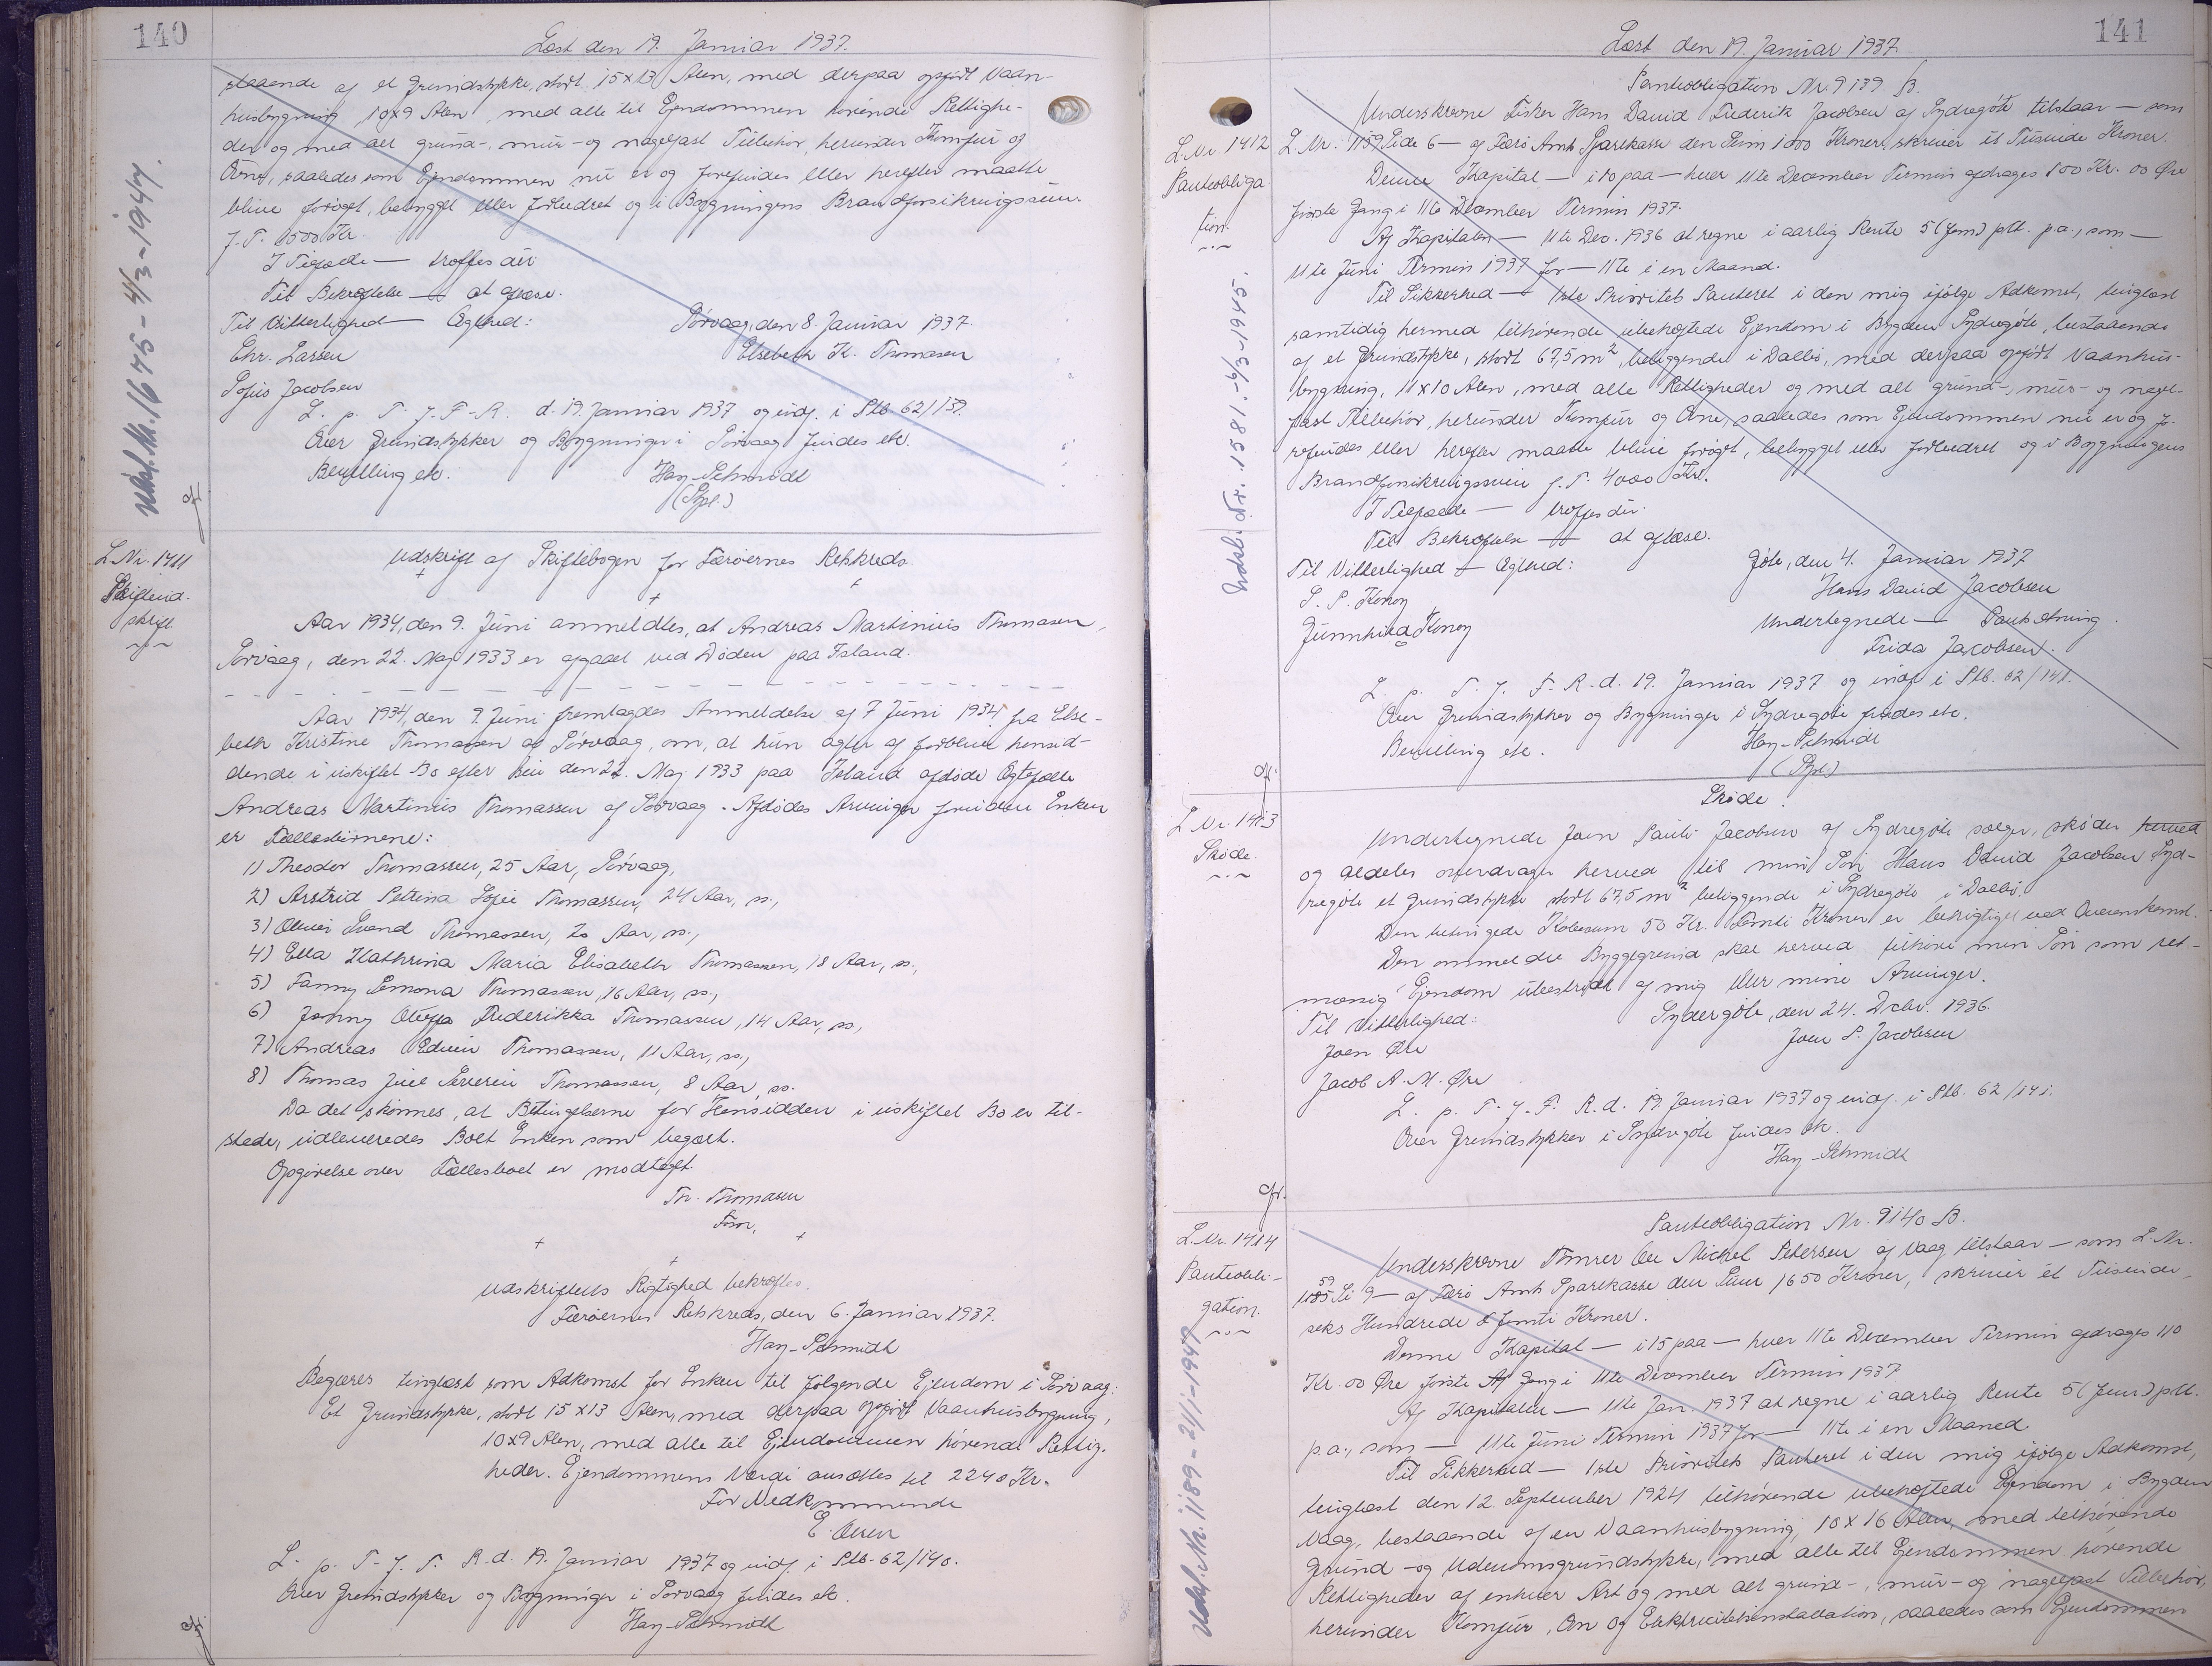 140
Læst den 19. Januar 1937.
staaende af et Grundstykke, stort 15 x 13 Alen, med derpaa opført Vaan-
husbygning 10x9 Alen, med alle til Ejendommen hørende Rettighe-
der og med alt grund-, mur- og nagelfast Tilbehør, herunder Komfur og
Ovne, saaledes som Ejendommen nu er og forefindes eller herefter maatte
blive forøget, bebygget eller forbedret og i Bygningens Brandforsikringssum
f. T. 1500 Kr.
I Tilfælde — træffes der
Til Bekræftelse — at oplæse.
Til Vitterlighed — Ægthed:
Sørvaag, den 8. Januar 1937.
Chr. Larsen
Elsebeth K. Thomasen
Sofus Jacobsen
L. p. T. f. F. R. d. 19. Januar 1937 og indf. i Ptb. 62/139.
Over Grundstykker og Bygninger i Sørvaag findes etc.
Bevilling etc.
Hay-Schmidt
(Spl.)
Udsl. Nr. 1675 - 4/3-1944.
L. Nr. 1411
Skifteud-
skrift
Udskrift af Skiftebogen for Færøernes Retskreds
Aar 1934, den 9. Juni anmeldtes, at Andreas Martinius Thomasen,
Sørvaag, den 22. Maj 1933 er afgaaet ved Døden paa Island.
Aar 1934, den 9. Juni fremlagdes Anmeldelse af 7 Juni 1934 fra Else-
beth Kristine Thomassen af Sørvaag, om, at hun agter at forblive hensid-
dende i uskiftet Bo efter sin den 22. Maj 1933 paa Island afdøde Ægtefælle
Andreas Martinius Thomassen af Sørvaag. Afdødes Arvinger foruden Enken
er Fællesbørnene:
1) Theodor Thomassen, 25 Aar, Sørvaag,
2) Asstrid Pettrina Sofie Thomassen, 24 Aar, ss.,
3) Oliver Svend Thomassen, 20 Aar, ss.,
4) Ella Kathrina Maria Elisabeth Thomassen, 18 Aar, ss.,
5) Fanny Semona Thomassen, 16 Aar, ss.,
6) Jenny Frederikka Thomassen, 14 Aar, ss,
7) Andreas Edvin Thomassen, 11 Aar, ss.,
8) Thomas Juul Severin Thomassen, 8 Aar, ss.
Da det skønnes, at Betingelserne for Hensidden i uskiftet Bo er til-
stede, udleveredes Boet Enken som begært.
Opgørelse over Fællesboet er modtaget.
Th. Thomasen
Udskriftens Rigtighed bekræftes.
Færøernes Retskreds, den 6. Januar 1937.
Hay-Schmidt
Begæres tinglæst som Adkomst for Enken til følgende Ejendom i Sørvaag:
Et Grundstykke, stort 15 x 13 Alen, med derpaa opført Vaanhusbygning,
10x9 Alen, med alle til Ejendommen hørende Rettig-
heder. Ejendommens Værdi ansættes til 2240 Kr.
For Vedkommende
L. p. T. f. F. R. d. 19. Januar 1937 og indf. i Ptb. 62/140.
Over Grundstykker og Bygninger i Sørvaag findes etc.
Hay-Schmidt
141
Læst den 19. Januar 1937
L. Nr. 1412
Panteobliga-
tion.
Panteobligation Nr. 9139 B.
Underskrevne Fisker Hans David Frederik Jacobsen af Sydregøte tilstaar — som
L. Nr. 1159 Side 6 — af Færø Amts Sparekasse den Sum 1000 Kroner, skriver et Tusinde Kroner.
Denne Kapital — i 10 paa — hver 11te December Termin afdrages 100 Kr. 00 Øre
første Gang i 11te December Termin 1937.
Af Kapitalen — 11te Dec. 1936 at regne i aarlig Rente 5 (fem) pCt. p.a., som —
11te Juni Termin 1937 for — 11te i en Maaned.
Til Sikkerhed — 1ste Prioritets Panteret i den mig ifølge Adkomst, tinglæst
samtidig hermed tilhørende ubehæftede Ejendom i Bygden Sydregøte, bestaaende
af et Grundstykke, stort 67,5 m², beliggende i Dalbø, med derpaa opført Vaanhus-
bygning, 11 x 10 Alen, med alle Rettigheder og med alt grund-, mur- og nagel-
fast Tilbehør, herunder Komfur og Ovne, saaledes som Ejendommen nu er og fo-
refindes eller herefter maatte blive forøget, bebygget eller forbedret og i Bygningens
Brandforsikringssum f. T. 4000 Kr.
I Tilfælde — træffes der.
Til Bekræftelse — at oplæse.
Til Vitterlighed — Ægthed:
Gøte, den 4. Januar 1937
Hans David Jacobsen
Undertegnede — Pantsætning.
Frida Jacobsen.
L. p. T. f. F. R. d. 19. Januar 1937 og indf. i Ptb. 62/141.
Over Grundstykker og Bygninger i Sydregøte findes etc.
Bevilling etc.
Hay-Schmidt
(Spl.)
Udsl. Nr. 1581.-6/3-1945.
L Nr. 1413
Skøde.
Skøde.
Undertegnede Joen Pauli Jacobsen af Sydregøte sælger, skøder herved
og aldeles overdrager herved til min Søn Hans David Jacobsen Syd-
regøte et Grundstykke stort 67,5 m² beliggende i Sydregøte i Dalbø.
Den betingede Købesum 50 Kr. Femti Kroner er berigtiget ved Overenskomst.
Den ommeldte Byggegrund skal herved tilhøre min Søn som ret-
mæssig Ejendom ubestridt af mig eller mine Arvinger.
Til Vitterlighed:
Sydergøte, den 24. Decbr. 1936.
Joen Øre
Joen P. Jacobsen
Jacob A. M. Øre
L. p. T. f. F. R. d. 19. Januar 1937 og indf. i Ptb. 62/141.
Over Grundstykker i Sydregøte findes etc.
Hay-Schmidt
L. Nr. 1414
Panteobli-
gation.
Panteobligation Nr. 9140 B.
Underskrevne Tømrer Ole Michel Petersen af Vaag tilstaar — som L. Nr.
59
1185 Si 9 — af Færø Amts Sparekasse den Sum 1650 Kroner, skriver ét Tusinde
seks Hundrede & femti Kroner.
Denne Kapital — i 15 paa — hver 11te December Termin afdrages 110
Kr. 00 Øre første Af Gang i 11te December Termin 1937
Af Kapitalen — 11te Jan. 1937 at regne i aarlig Rente 5 (fem) pCt.
p.a., som — 11te Juni Termin 1937 for — 11te i en Maaned
Til Sikkerhed — 1ste Prioritets Panteret i den mig ifølge Adkomst,
tinglæst den 12. September 1924 tilhørende ubehæftede Ejendom i Bygden
Vaag, bestaaende af en Vaanhusbygning, 10 x 16 Alen, med tilhørende
Grund- og Udenomsgrundstykke, med alle til Ejendommen hørende
Rettigheder af enhver Art og med alt grund-, mur- og nagelfast Tilbehør,
herunder Komfur, Ovn og Elektricitetsinstallation, saaledes som Ejendommen
Udsl. Nr. 1189 - 21/1-1947